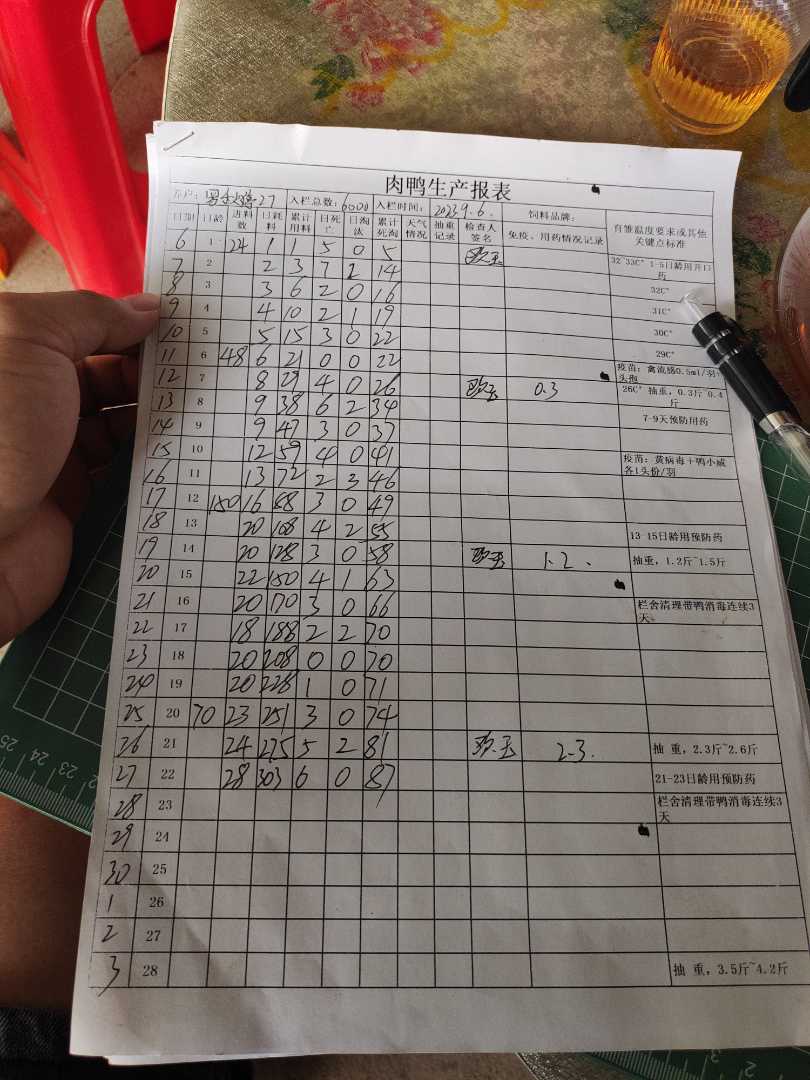 肉鸭生产报表
养户： 27 入栏总数：6000 入栏时间：2023.9.6. 饲料品牌：
日期 日龄 进料数 日耗料 累计用料 日死亡 日淘汰 累计死淘 天气情况 抽重记录 检查人签名 免疫、用药情况记录 育雏温度要求或其他关键点标准
6 1 24 1 1 5 0 5
7 2 2 3 7 2 14 32~33C° 1-5日龄用开口药
8 3 3 6 2 0 16 32C°
9 4 4 10 2 1 19 31C°
10 5 5 15 3 0 22 30C°
11 6 48 6 21 0 0 22 29C°
12 7 8 29 4 0 26 0.3 疫苗：禽流感0.5ml/羽 26C° 抽重，0.3斤~0.4斤
13 8 9 38 6 2 34
14 9 9 47 3 0 37 7-9天预防用药
15 10 12 59 4 0 41
16 11 13 72 2 3 46 疫苗：黄病毒+鸭小减各1头份/羽
17 12 180 16 88 3 0 49
18 13 20 108 4 2 55
19 14 20 128 3 0 58 1.2. 13-15日龄用预防药 抽重，1.2斤~1.5斤
20 15 22 150 4 1 63
21 16 20 170 3 0 66 栏舍清理带鸭消毒连续3天
22 17 18 188 2 2 70
23 18 20 208 0 0 70
24 19 20 228 1 0 71
25 20 70 23 251 3 0 74
26 21 24 275 5 2 81 2-3. 抽 重，2.3斤~2.6斤
27 22 28 303 6 0 87 21-23日龄用预防药
28 23 栏舍清理带鸭消毒连续3天
29 24
30 25
1 26
2 27
3 28 抽 重，3.5斤~4.2斤